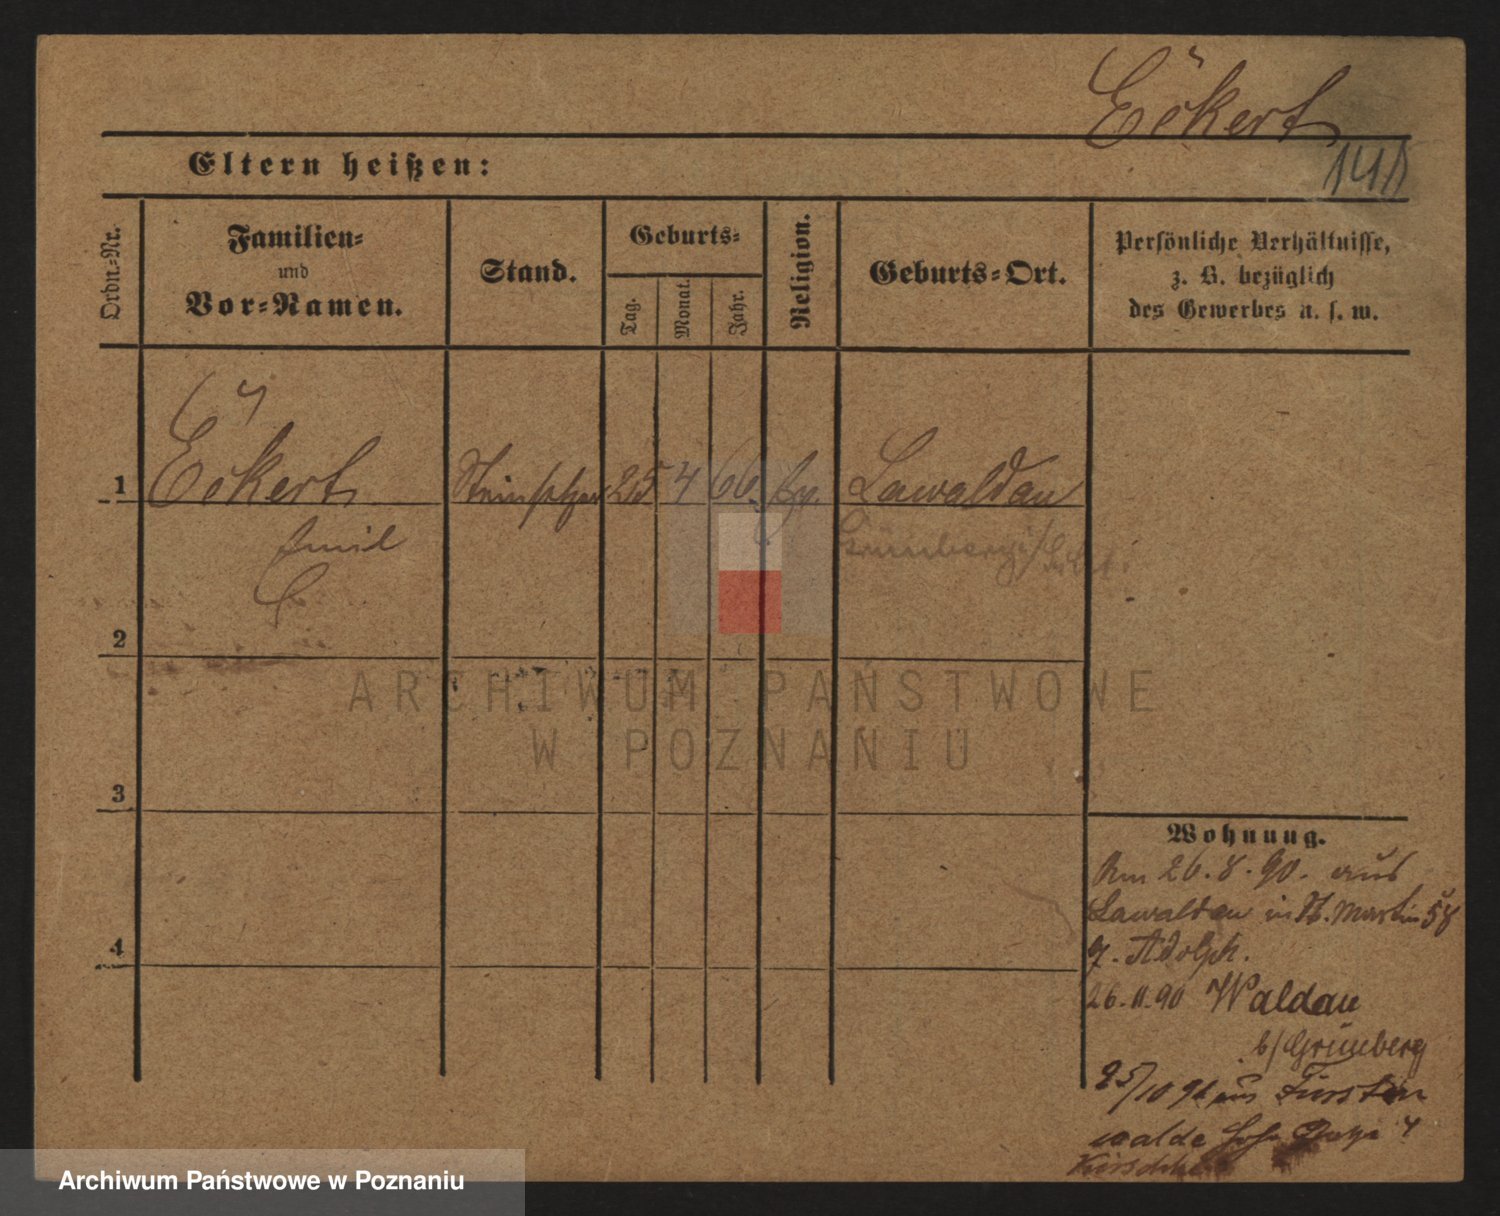 Eckert
141
Eltern heißen:
Ordn.-Nr.
Familien-
und
Vor-Namen.
Stand.
Geburts-
Tag.
Monat.
Jahr.
Religion.
Geburts-Ort.
Persönliche Verhältnisse,
z. B. bezüglich
des Gewerbes u. s. w.
1
Eckert
Steinsetzer
25
4
66
Ev.
Lawaldau
Emil
Grünberg
2
ARCHIWUM PAŃSTWOWE
W POZNANIU
3
Wohnung.
26.8.90. aus
Lawaldau in St. Martin 58
Adolph.
4
26.11.90 Waldau
b/Grünberg
25/10 91 aus Fürsten
walde
Archiwum Państwowe w Poznaniu